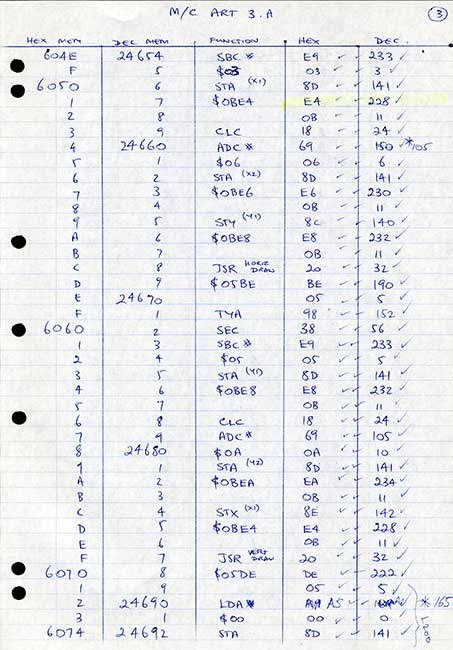 M/C ART 3.A ③
HEX MEM DEC MEM FUNCTION HEX DEC.
604E 24654 SBC # E9 ✓ ✓ 233 ✓
F 5 $03 03 ✓ ✓ 3 ✓
6050 6 STA (X1) 8D ✓ ✓ 141 ✓
1 7 $0BE4 E4 ✓ ✓ 228 ✓
2 8 0B ✓ ✓ 11 ✓
3 9 CLC 18 ✓ ✓ 24 ✓
4 24660 ADC # 69 ✓ ✓ 150 ✓ *105
5 1 $06 06 ✓ ✓ 6 ✓
6 2 STA (X2) 8D ✓ ✓ 141 ✓
7 3 $0BE6 E6 ✓ ✓ 230 ✓
8 4 0B ✓ ✓ 11 ✓
9 5 STY (Y1) 8C ✓ ✓ 140 ✓
A 6 $0BE8 E8 ✓ ✓ 232 ✓
B 7 0B ✓ ✓ 11 ✓
C 8 JSR HORIZ DRAW 20 ✓ ✓ 32 ✓
D 9 $05BE BE ✓ ✓ 190 ✓
E 24670 05 ✓ ✓ 5 ✓
F 1 TYA 98 ✓ ✓ 152 ✓
6060 2 SEC 38 ✓ ✓ 56 ✓
1 3 SBC # E9 ✓ ✓ 233 ✓
2 4 $05 05 ✓ ✓ 5 ✓
3 5 STA (Y1) 8D ✓ ✓ 141 ✓
4 6 $0BE8 E8 ✓ ✓ 232 ✓
5 7 0B ✓ ✓ 11 ✓
6 8 CLC 18 ✓ ✓ 24 ✓
7 9 ADC # 69 ✓ ✓ 105 ✓
8 24680 $0A 0A ✓ ✓ 10 ✓
9 1 STA (Y2) 8D ✓ ✓ 141 ✓
A 2 $0BEA EA ✓ ✓ 234 ✓
B 3 0B ✓ ✓ 11 ✓
C 4 STX (X1) 8E ✓ ✓ 142 ✓
D 5 $0BE4 E4 ✓ ✓ 228 ✓
E 6 0B ✓ ✓ 11 ✓
F 7 JSR VERT DRAW 20 ✓ ✓ 32 ✓
6070 8 $05DE DE ✓ ✓ 222 ✓
1 9 05 ✓ ✓ 5 ✓
2 24690 LDA # A5 ✓ ✓ * 165
3 1 $00 00 ✓ ✓ 0 ✓
6074 24692 STA 8D ✓ ✓ 141 ✓